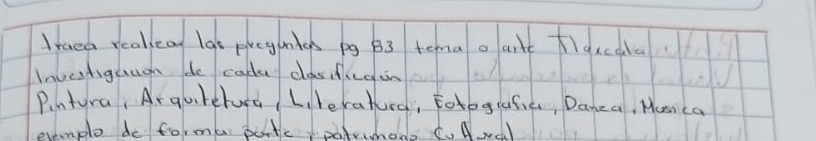 Traea realizar las preguntas pg 83 tema o arte Tlaxcala
Investigacion de cada clasificacion
Pintura, Arquitetura, Literatura, Fotografia, Danza, Musica
exemplo de forma parte, patrimono Cultural